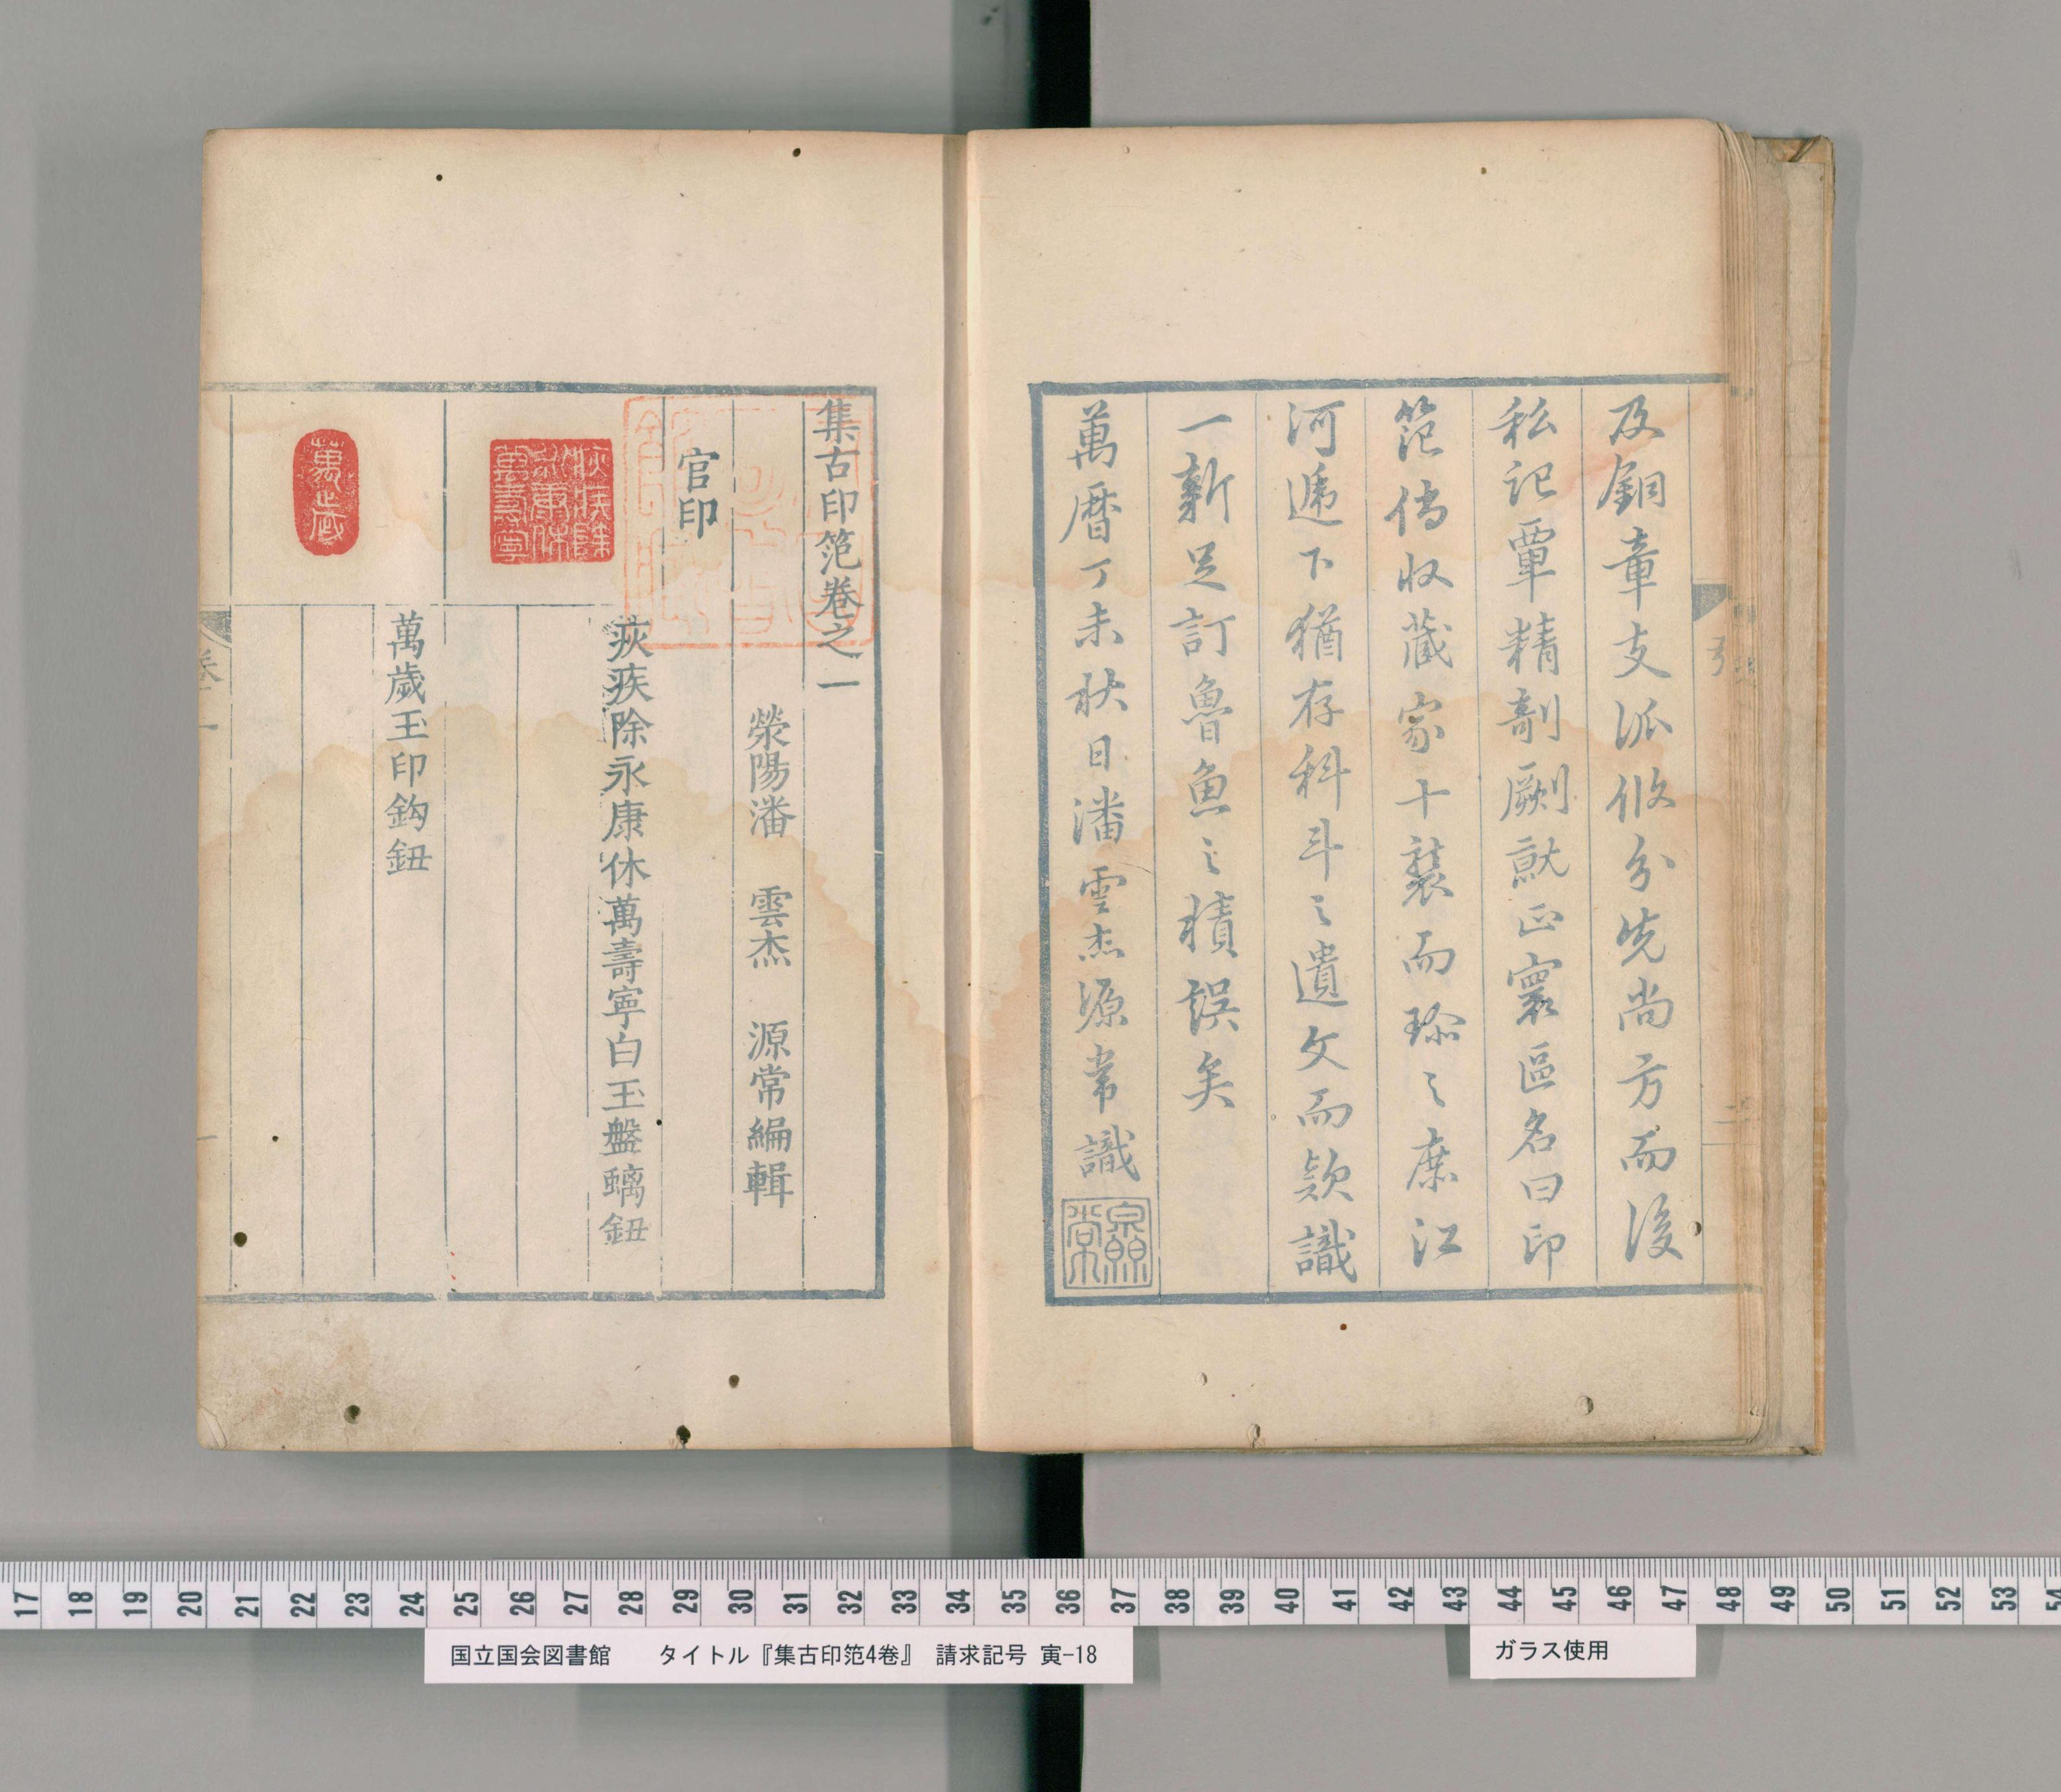 及銅章支派攸分先尚方而後
私記覃精剞劂就正寰區名曰印
笵傳收藏家十襲而珍之庶江
河遞下猶存科斗之遺文而款識
一新足訂魯魚之積誤矣
萬曆丁未秋日潘雲杰源常識
集古印笵卷之一
滎陽潘 雲杰 源常編輯
官印
疢疾除永康休萬壽寧白玉盤螭鈕
萬歲玉印鈎鈕
萬歲
卷一
17 18 19 20 21 22 23 24 25 26 27 28 29 30 31 32 33 34 35 36 37 38 39 40 41 42 43 44 45 46 47 48 49 50 51 52 53 54
国立国会図書館 タイトル『集古印笵4卷』 請求記号 寅-18
ガラス使用